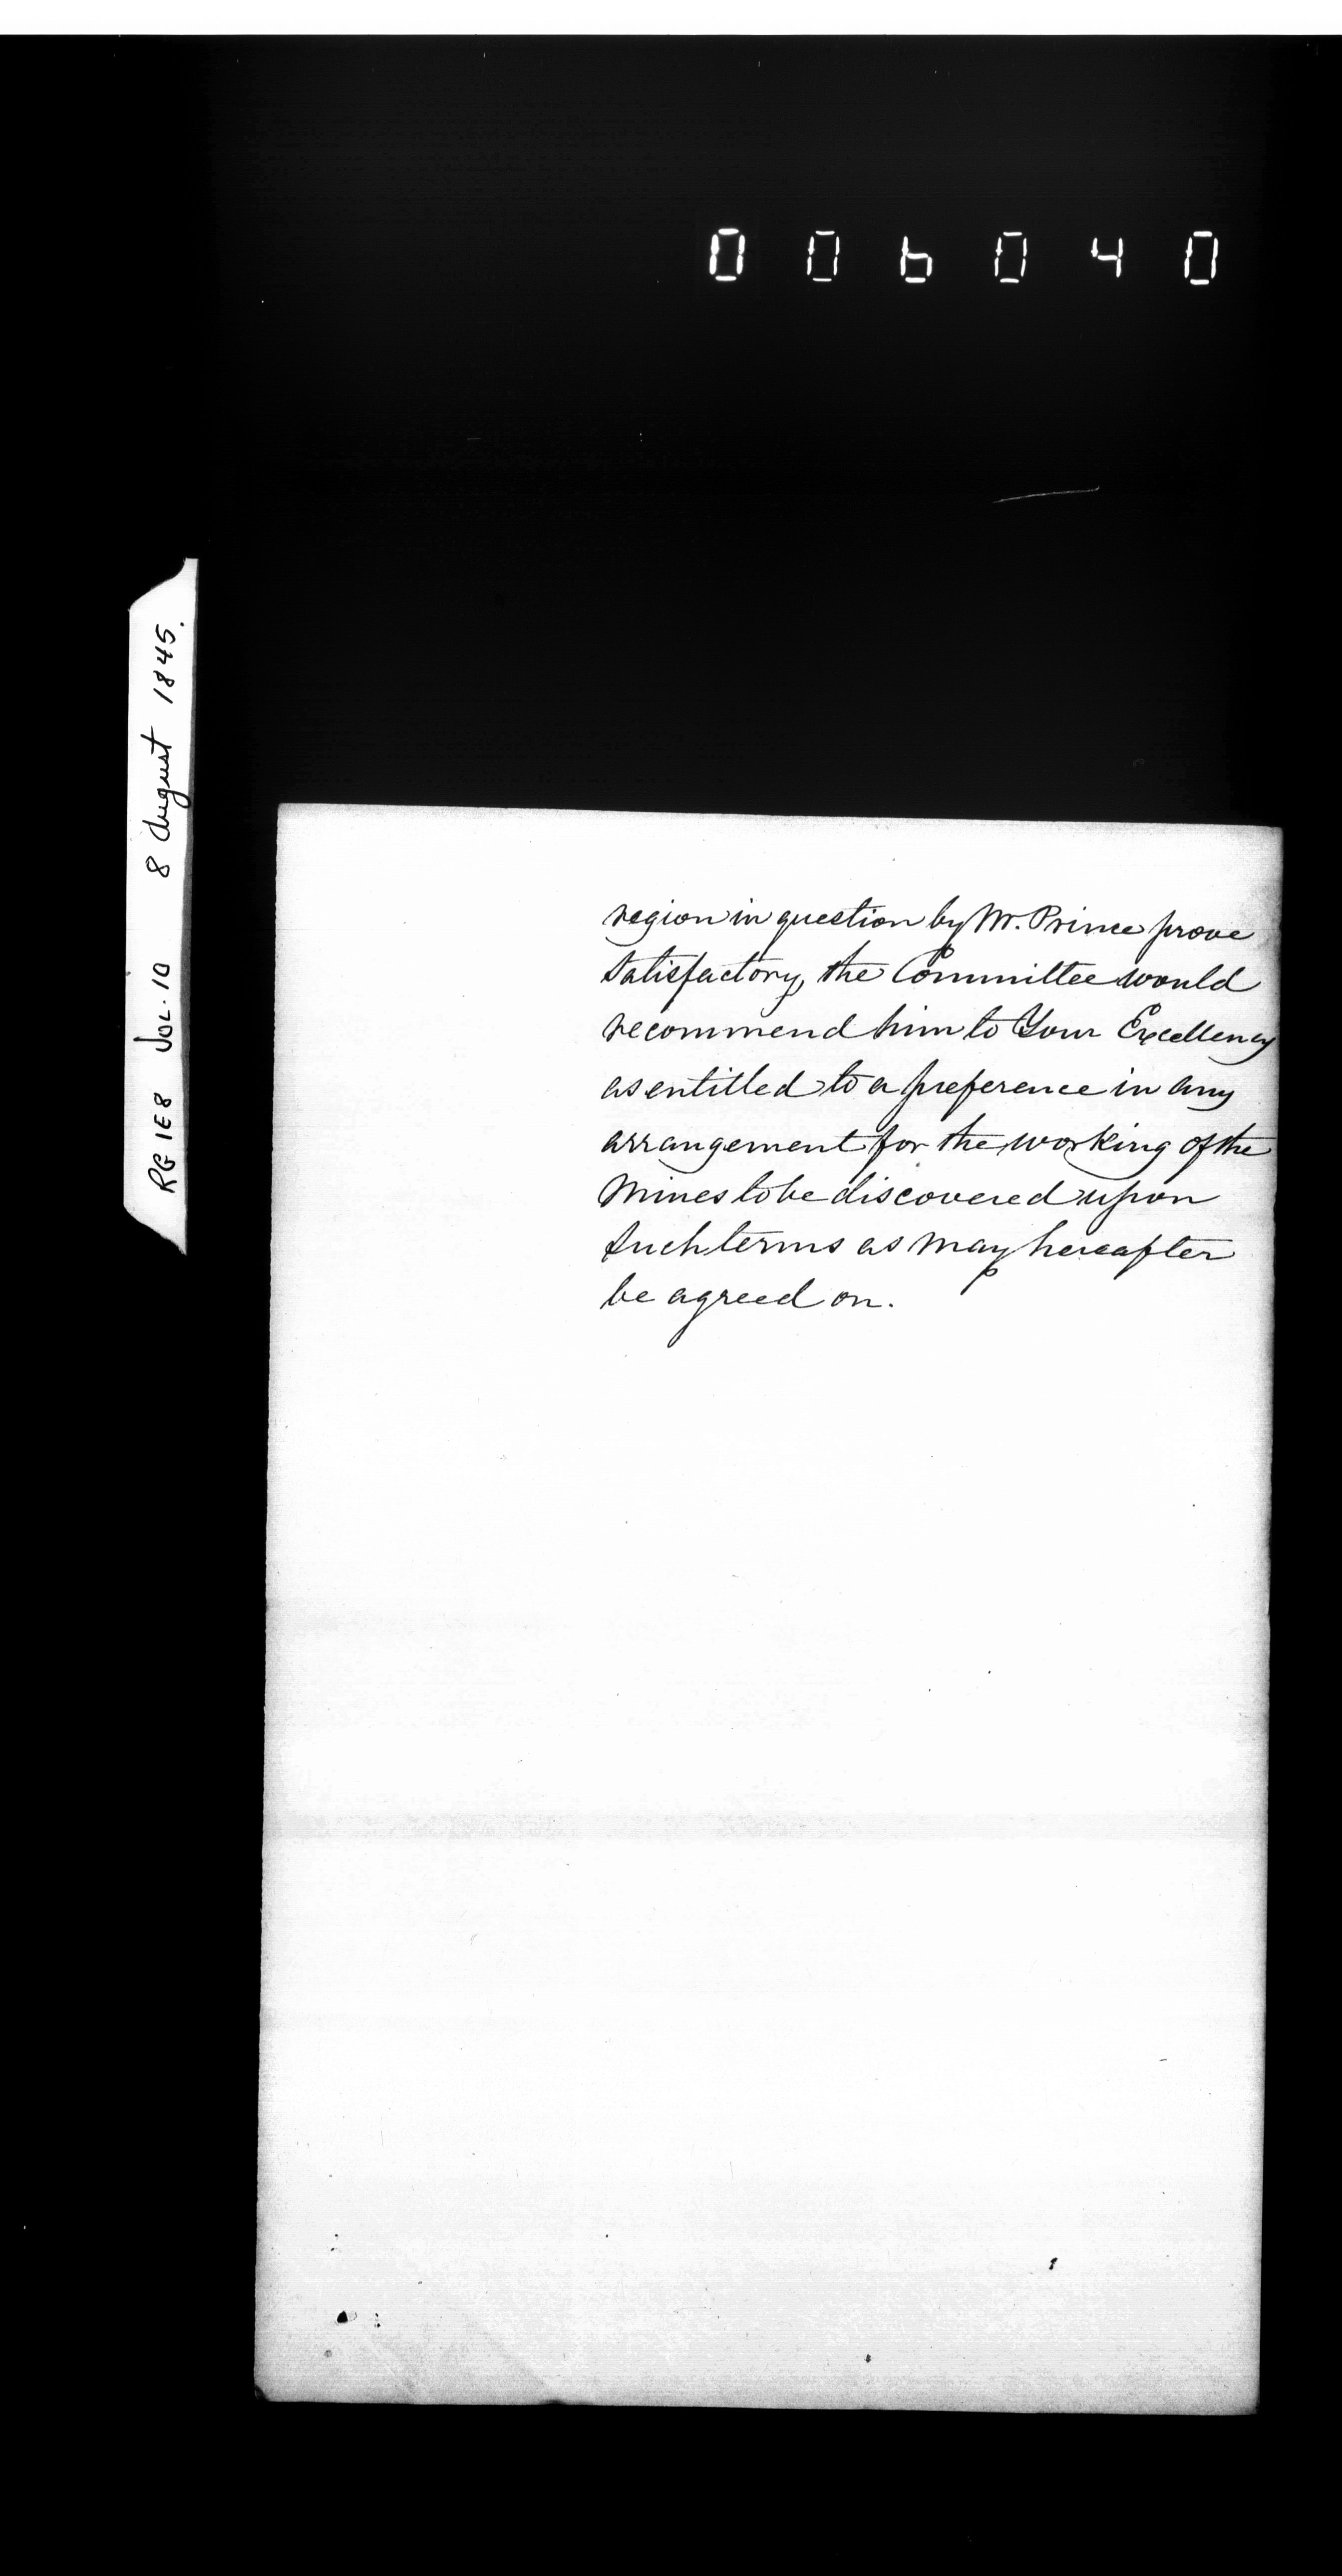 006040
RG 1E8 VOL. 10 8 August 1845.
region in question by Mr. Prince prove
satisfactory, the Committee would
recommend him to Your Excellency
as entitled to a preference in any
arrangement for the working of the
Mines to be discovered upon
such terms as may hereafter
be agreed on.